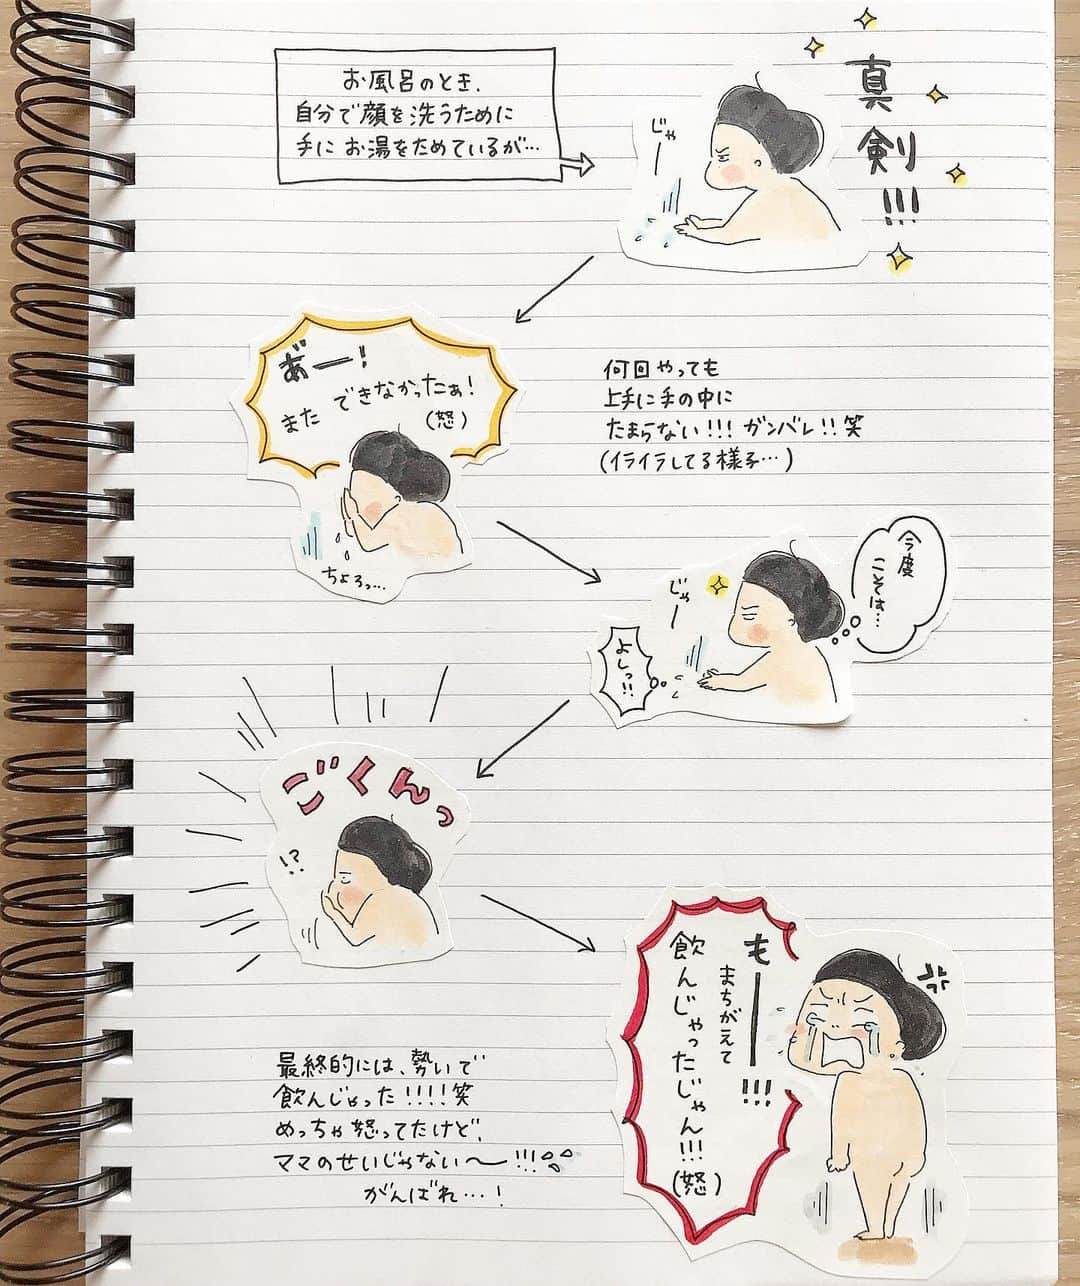 お風呂のとき、
自分で顔を洗うために
手にお湯をためているが…
じゃー
真剣!!!
あ゛ー!
また できなかったぁ!
(怒)
ちょろっ…
何回やっても
上手に手の中に
たまらない!!! ガンバレ!! 笑
(イライラしてる様子…)
今度
こそは…
じゃー
よしっ!!
ごくんっ
!?
も────!!!
まちがえて
飲んじゃったじゃん!!!
(怒)
最終的には、勢いで
飲んじゃった!!!!笑
めっちゃ怒ってたけど、
ママのせいじゃない〜!!!
がんばれ…!